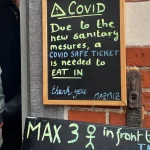 ⚠ COVID
Due to the
new sanitary
mesures, a
COVID SAFE TICKET
is needed to
EAT IN
thank you MAEMIZ
MAX 3 in front